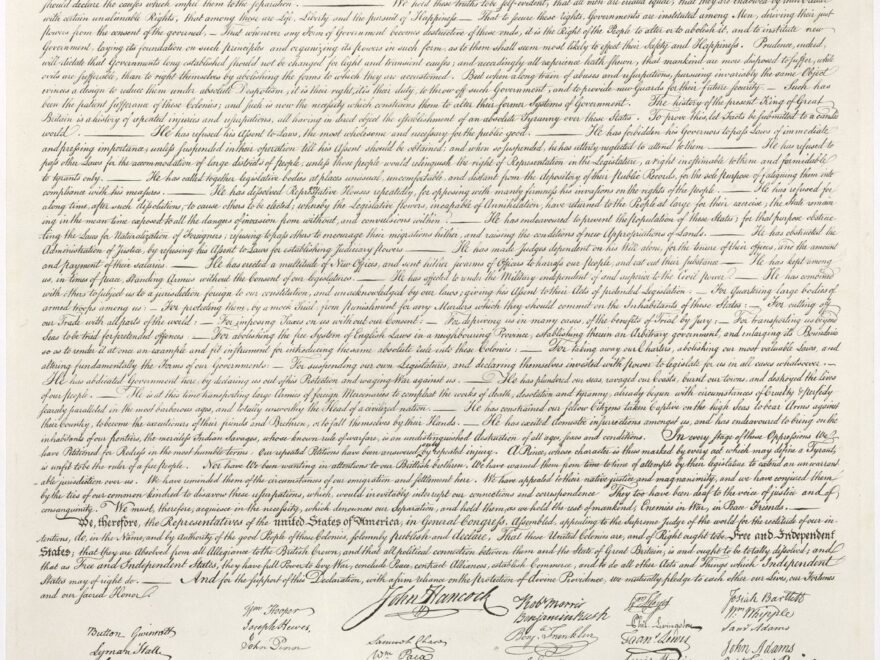 should declare the causes which impel them to the separation. We hold these truths to be self-evident, that all men are created equal, that they are endowed by their Creator
with certain unalienable Rights, that among these are Life, Liberty and the pursuit of Happiness.— That to secure these rights, Governments are instituted among Men, deriving their just
powers from the consent of the governed,— That whenever any Form of Government becomes destructive of these ends, it is the Right of the People to alter or to abolish it, and to institute new
Government, laying its foundation on such principles and organizing its powers in such form, as to them shall seem most likely to effect their Safety and Happiness. Prudence, indeed,
will dictate that Governments long established should not be changed for light and transient causes; and accordingly all experience hath shewn, that mankind are more disposed to suffer, while
evils are sufferable, than to right themselves by abolishing the forms to which they are accustomed. But when a long train of abuses and usurpations, pursuing invariably the same Object
evinces a design to reduce them under absolute Despotism, it is their right, it is their duty, to throw off such Government, and to provide new Guards for their future security.— Such has
been the patient sufferance of these Colonies; and such is now the necessity which constrains them to alter their former Systems of Government. The history of the present King of Great
Britain is a history of repeated injuries and usurpations, all having in direct object the establishment of an absolute Tyranny over these States. To prove this, let Facts be submitted to a candid
world. — He has refused his Assent to Laws, the most wholesome and necessary for the public good. — He has forbidden his Governors to pass Laws of immediate
and pressing importance, unless suspended in their operation till his Assent should be obtained; and when so suspended, he has utterly neglected to attend to them. — He has refused to
pass other Laws for the accommodation of large districts of people, unless those people would relinquish the right of Representation in the Legislature, a right inestimable to them and formidable
to tyrants only. — He has called together legislative bodies at places unusual, uncomfortable, and distant from the depository of their public Records, for the sole purpose of fatiguing them into
compliance with his measures. — He has dissolved Representative Houses repeatedly, for opposing with manly firmness his invasions on the rights of the people. — He has refused for
a long time, after such dissolutions, to cause others to be elected; whereby the Legislative powers, incapable of Annihilation, have returned to the People at large for their exercise; the State remain-
ing in the mean time exposed to all the dangers of invasion from without, and convulsions within. — He has endeavoured to prevent the population of these States; for that purpose obstruc-
ting the Laws for Naturalization of Foreigners; refusing to pass others to encourage their migrations hither, and raising the conditions of new Appropriations of Lands. — He has obstructed the
Administration of Justice, by refusing his Assent to Laws for establishing Judiciary powers. — He has made Judges dependent on his Will alone, for the tenure of their offices, and the amount
and payment of their salaries. — He has erected a multitude of New Offices, and sent hither swarms of Officers to harrass our people, and eat out their substance. — He has kept among
us, in times of peace, Standing Armies without the Consent of our legislatures. — He has affected to render the Military independent of and superior to the Civil power. — He has combined
with others to subject us to a jurisdiction foreign to our constitution, and unacknowledged by our laws; giving his Assent to their Acts of pretended Legislation: — For Quartering large bodies of
armed troops among us: — For protecting them, by a mock Trial, from punishment for any Murders which they should commit on the Inhabitants of these States: — For cutting off
our Trade with all parts of the world: — For imposing Taxes on us without our Consent: — For depriving us in many cases, of the benefits of Trial by Jury: — For transporting us beyond
Seas to be tried for pretended offences — For abolishing the free System of English Laws in a neighbouring Province, establishing therein an Arbitrary government, and enlarging its Boundaries
so as to render it at once an example and fit instrument for introducing the same absolute rule into these Colonies: — For taking away our Charters, abolishing our most valuable Laws, and
altering fundamentally the Forms of our Governments: — For suspending our own Legislatures, and declaring themselves invested with power to legislate for us in all cases whatsoever. —
He has abdicated Government here, by declaring us out of his Protection and waging War against us. — He has plundered our seas, ravaged our Coasts, burnt our towns, and destroyed the lives
of our people. — He is at this time transporting large Armies of foreign Mercenaries to compleat the works of death, desolation and tyranny, already begun with circumstances of Cruelty & perfidy
scarcely paralleled in the most barbarous ages, and totally unworthy the Head of a civilized nation. — He has constrained our fellow Citizens taken Captive on the high Seas to bear Arms against
their Country, to become the executioners of their friends and Brethren, or to fall themselves by their Hands. — He has excited domestic insurrections amongst us, and has endeavoured to bring on the
inhabitants of our frontiers, the merciless Indian Savages, whose known rule of warfare, is an undistinguished destruction of all ages, sexes and conditions. In every stage of these Oppressions We
have Petitioned for Redress in the most humble terms: Our repeated Petitions have been answered only by repeated injury. A Prince, whose character is thus marked by every act which may define a Tyrant,
is unfit to be the ruler of a free people. Nor have We been wanting in attentions to our Brittish brethren. We have warned them from time to time of attempts by their legislature to extend an unwarrant-
able jurisdiction over us. We have reminded them of the circumstances of our emigration and settlement here. We have appealed to their native justice and magnanimity, and we have conjured them
by the ties of our common kindred to disavow these usurpations, which, would inevitably interrupt our connections and correspondence. They too have been deaf to the voice of justice and of
consanguinity. We must, therefore, acquiesce in the necessity, which denounces our Separation, and hold them, as we hold the rest of mankind, Enemies in War, in Peace Friends. —
We, therefore, the Representatives of the united States of America, in General Congress, Assembled, appealing to the Supreme Judge of the world for the rectitude of our in-
tentions, do, in the Name, and by Authority of the good People of these Colonies, solemnly publish and declare, That these United Colonies are, and of Right ought to be Free and Independent
States; that they are Absolved from all Allegiance to the British Crown, and that all political connection between them and the State of Great Britain, is and ought to be totally dissolved; and
that as Free and Independent States, they have full Power to levy War, conclude Peace, contract Alliances, establish Commerce, and to do all other Acts and Things which Independent
States may of right do. — And for the support of this Declaration, with a firm reliance on the protection of divine Providence, we mutually pledge to each other our Lives, our Fortunes
and our sacred Honor.
John Hancock
Button Gwinnett
Lyman Hall
Wm Hooper
Joseph Hewes,
John Penn
Samuel Chase
Wm Paca
Robt Morris
Benjamin Rush
Benj. Franklin
Phil. Livingston
Frans. Lewis
Josiah Bartlett
Wm Whipple
Saml Adams
John Adams